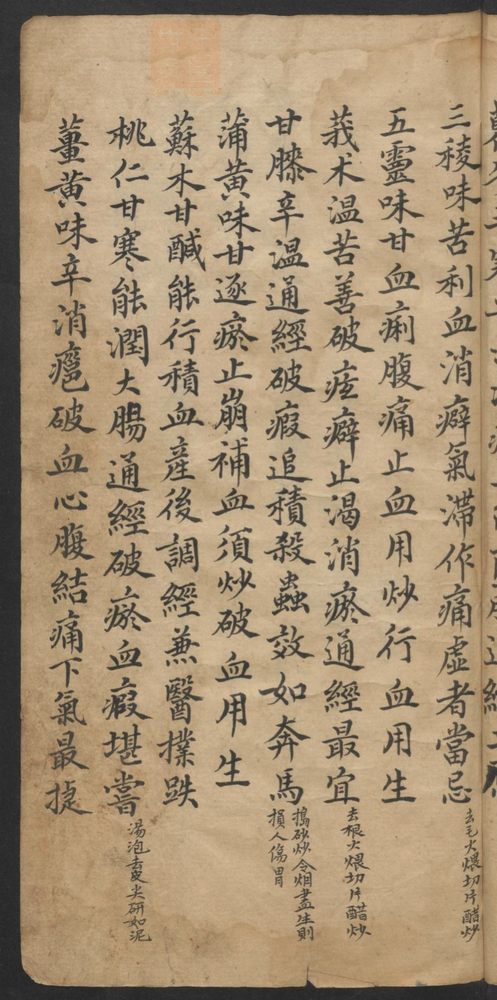 三稜味苦利血消癖氣滯作痛虛者當忌
去毛火煨切片醋炒
五靈味甘血痢腹痛止血用炒行血用生
莪术溫苦善破痃癖止渴消瘀通經最宜
去根火煨切片醋炒
甘膝辛溫通經破瘕追積殺蟲效如奔馬
搗砂炒令烟盡生則
損人傷胃
蒲黄味甘逐瘀止崩補血須炒破血用生
蘇木甘鹹能行積血産後調經兼醫撲跌
桃仁甘寒能潤大腸通經破瘀血瘕堪嘗
湯泡去皮尖研如泥
薑黄味辛消癰破血心腹結痛下氣最捷